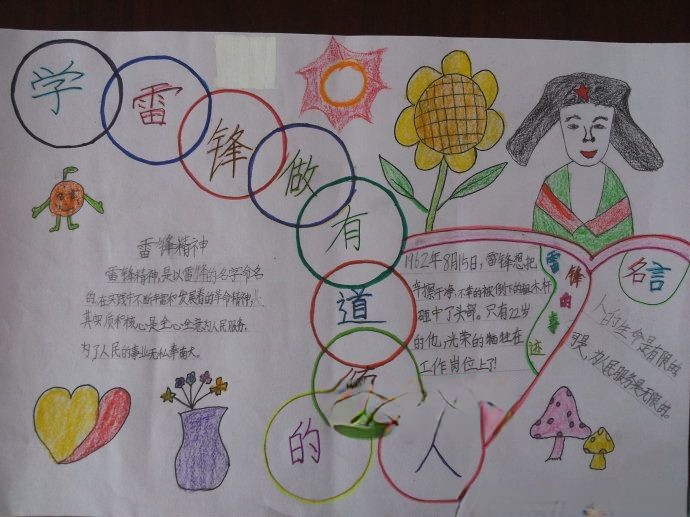 学雷锋做有道德的人
雷锋精神
雷锋精神,是以雷锋的名字命名
的,在实践中不断丰富和发展着的革命精神,
其实质和核心是全心全意为人民服务,
为了人民的事业无私奉献。
1962年8月15日,雷锋想把
车擦干净,不幸的被倒下的
砸中了头部。只有22岁
的他,光荣的牺牲在
工作岗位上了!
雷锋的事迹
名言
人的生命是有限的,
可是,为人民服务是无限的。